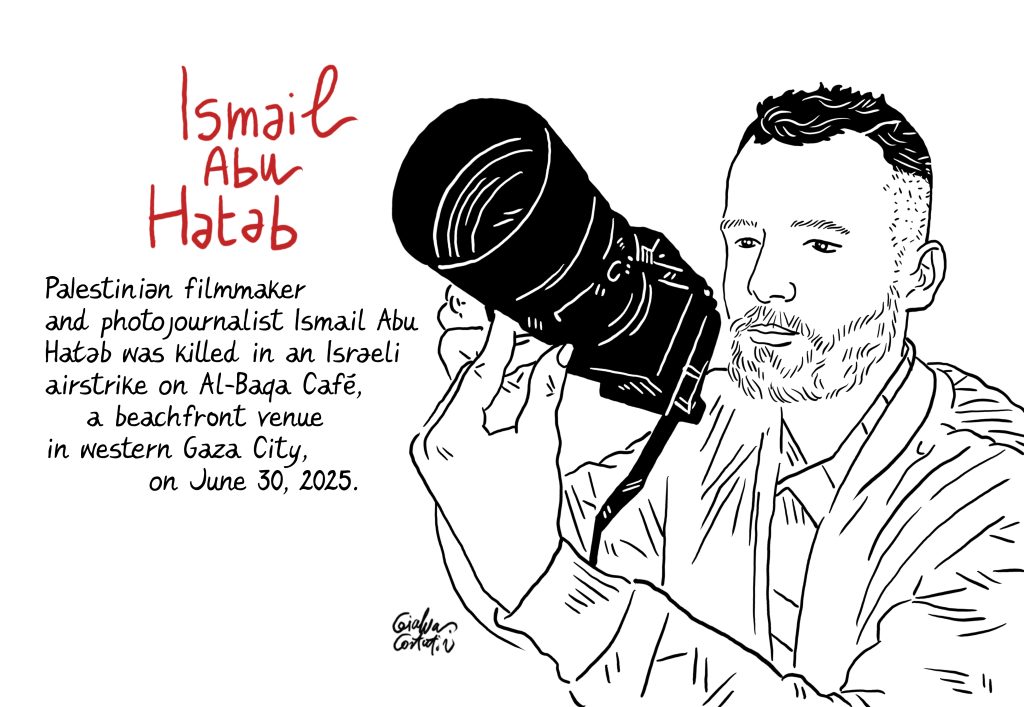 Ismail
Abu
Hatab
Palestinian filmmaker
and photojournalist Ismail Abu
Hatab was killed in an Israeli
airstrike on Al-Baqa Café,
a beachfront venue
in western Gaza City,
on June 30, 2025.